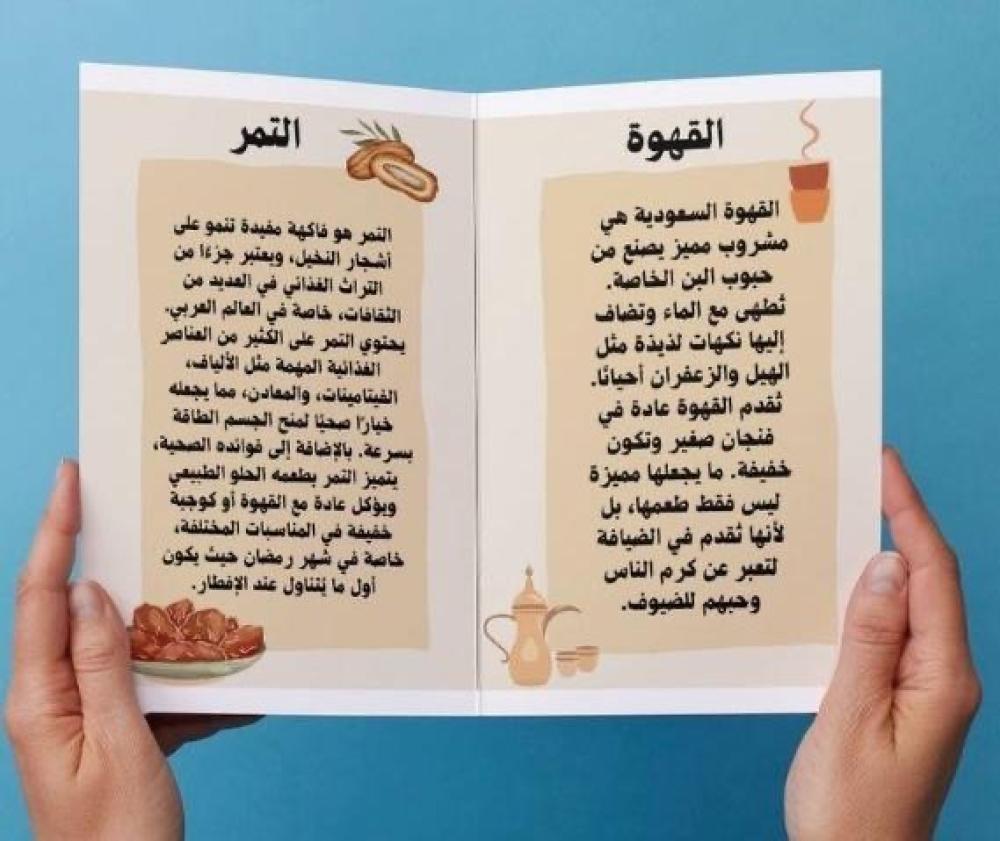 القهوة
القهوة السعودية هي
مشروب مميز يصنع من
حبوب البن الخاصة.
تُطهى مع الماء وتضاف
إليها نكهات لذيذة مثل
الهيل والزعفران أحيانًا.
تُقدم القهوة عادة في
فنجان صغير وتكون
خفيفة. ما يجعلها مميزة
ليس فقط طعمها، بل
لأنها تُقدم في الضيافة
لتعبر عن كرم الناس
وحبهم للضيوف.
التمر
التمر هو فاكهة مفيدة تنمو على
أشجار النخيل، ويعتبر جزءًا من
التراث الغذائي في العديد من
الثقافات، خاصة في العالم العربي.
يحتوي التمر على الكثير من العناصر
الغذائية المهمة مثل الألياف،
الفيتامينات، والمعادن، مما يجعله
خيارًا صحيًا لمنح الجسم الطاقة
بسرعة. بالإضافة إلى فوائده الصحية،
يتميز التمر بطعمه الحلو الطبيعي
ويؤكل عادة مع القهوة أو كوجبة
خفيفة في المناسبات المختلفة،
خاصة في شهر رمضان حيث يكون
أول ما يُتناول عند الإفطار.